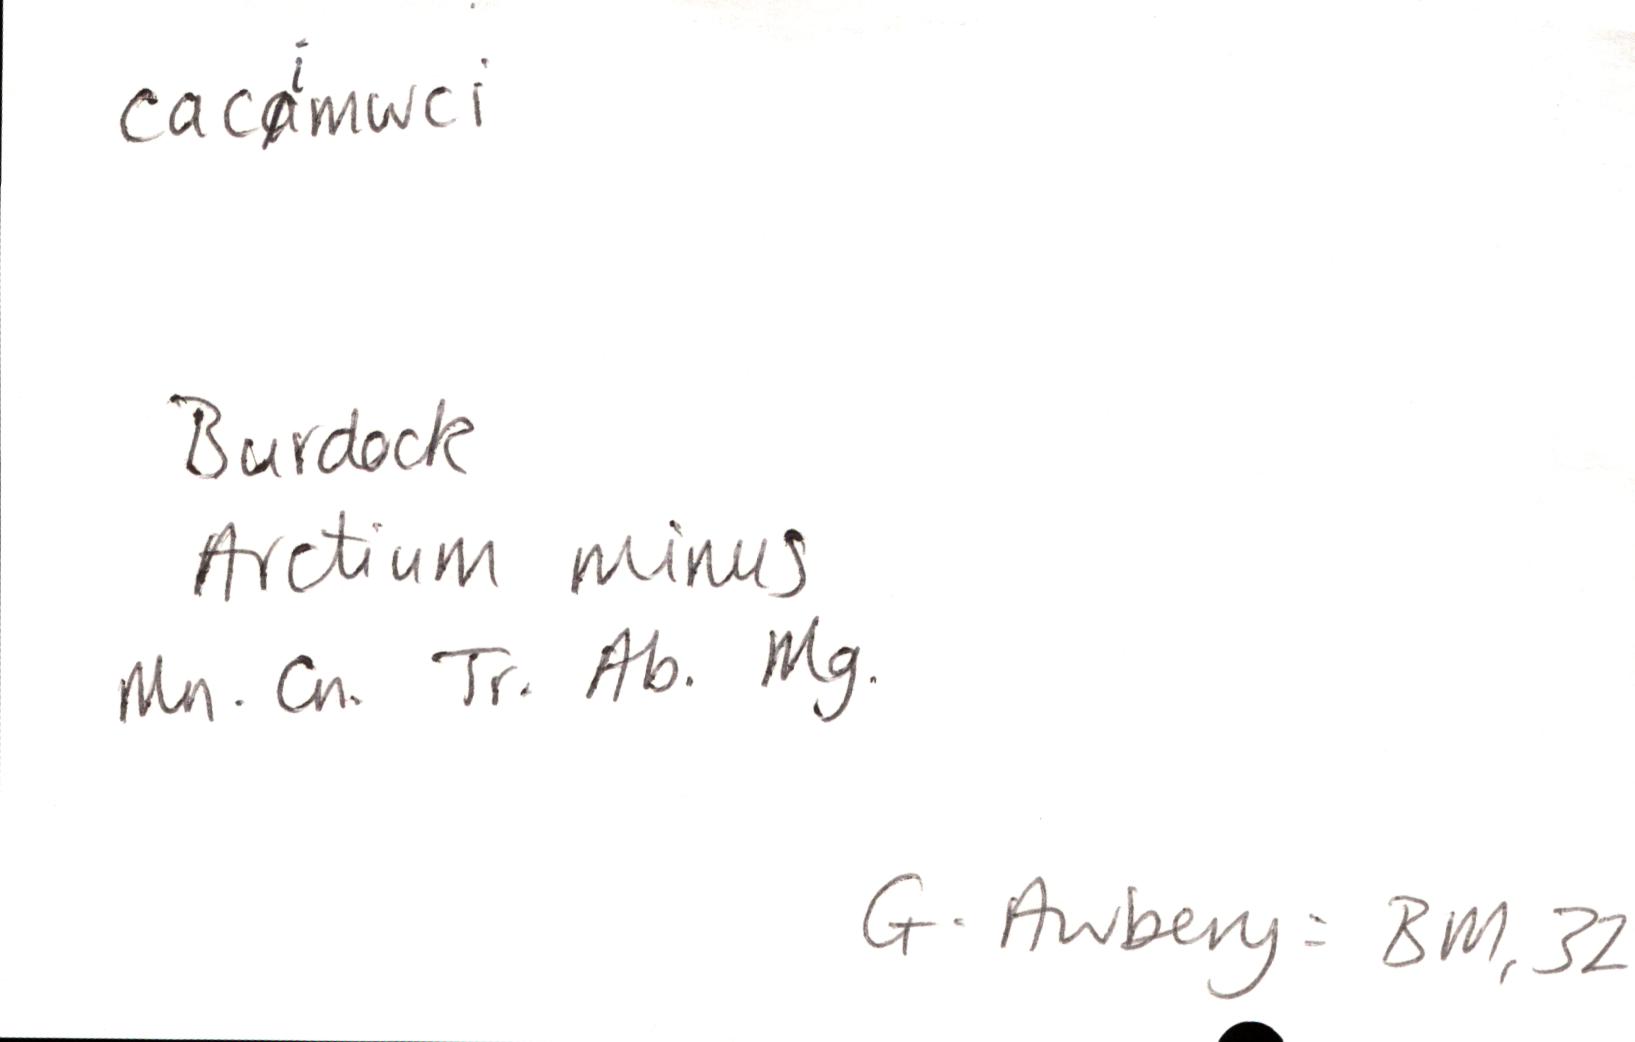 cacimwci
Burdock
Arctium minus
Mn. Cn. Tr. Ab. Mg.
G. Awbery = BM, 32